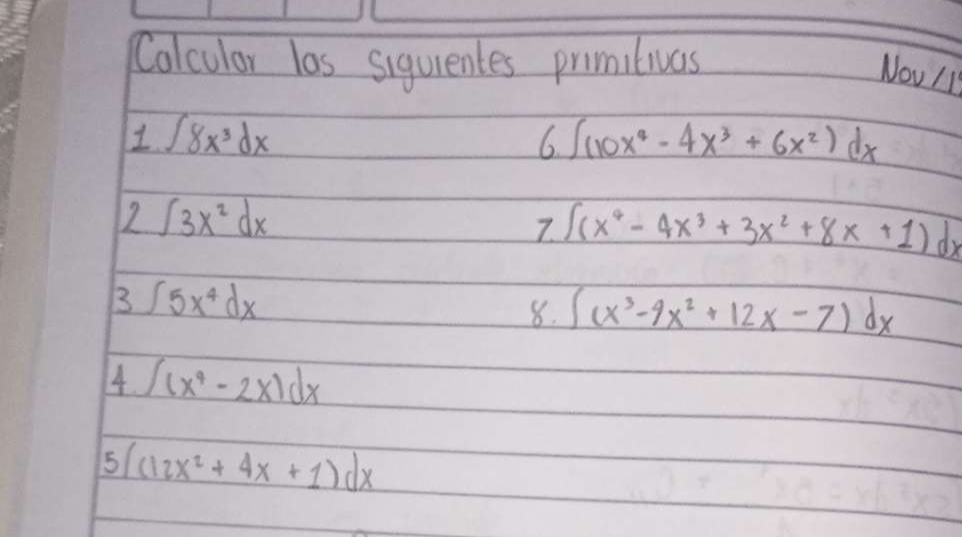 Calcular las siguientes primitivas Nov/19
1. ∫8x³dx
6. ∫(10x⁴ - 4x³ + 6x²) dx
2 ∫3x² dx
7. ∫(x⁴ - 4x³ + 3x² + 8x + 1) dx
3 ∫5x⁴ dx
8. ∫(x³ - 9x² + 12x - 7) dx
4. ∫(x⁴ - 2x) dx
5 ∫(12x² + 4x + 1) dx